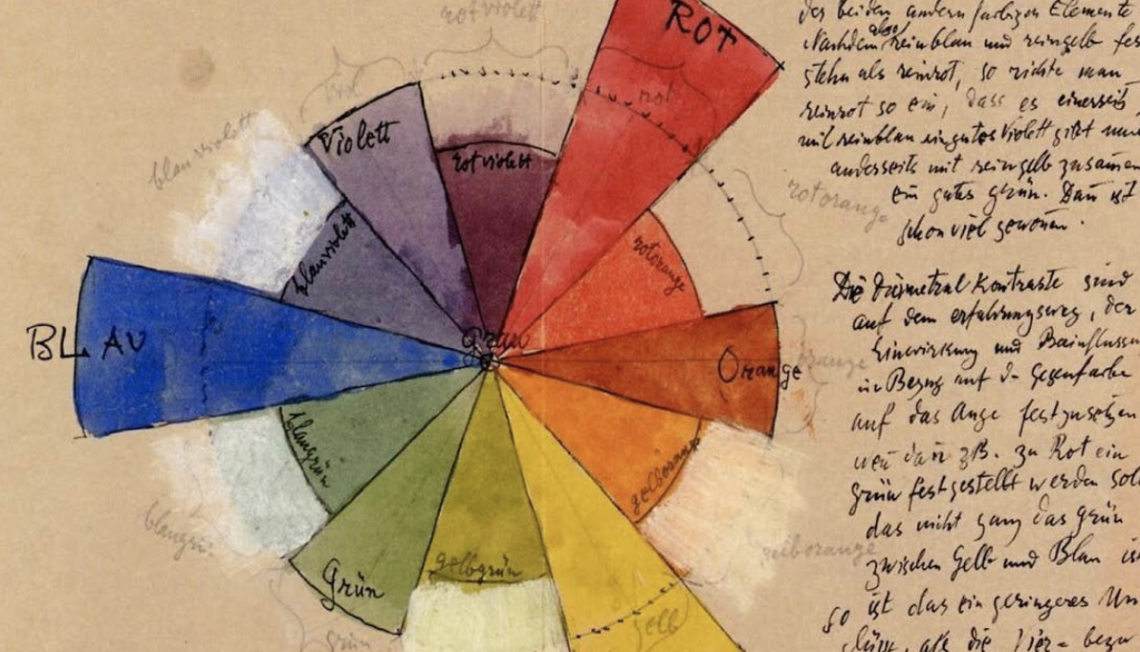 rotviolett
ROT
rot
violett
Violett
rotviolett
blauviolett
blauviolett
rotorange
rotorange
BLAU
grau
Orange
orange
blaugrün
gelborange
gelborange
Grün
grün
gelbgrün
gelb
der beiden andern farbigen Elemente
Nachdem also reinblau und reingelb fes
stehn als reinrot, so richte man
reinrot so ein, dass es einerseits
mit reinblau ein gutes Violett gibt und
anderseits mit reingelb zusammen
ein gutes grün. Dann ist
schon viel gewonnen.
Die diametral Kontraste sind
auf dem erfahrungsweg, der
Einwirkung und Beinflussun
in Bezug auf d. gegenfarbe
auf das Auge festzusetzen
wenn dann zB. zu Rot ein
grün festgestellt werden soll
das nicht ganz das grün
zwischen Gelb und Blau ist
so ist das ein geringeres Un
als die Vier- bezw